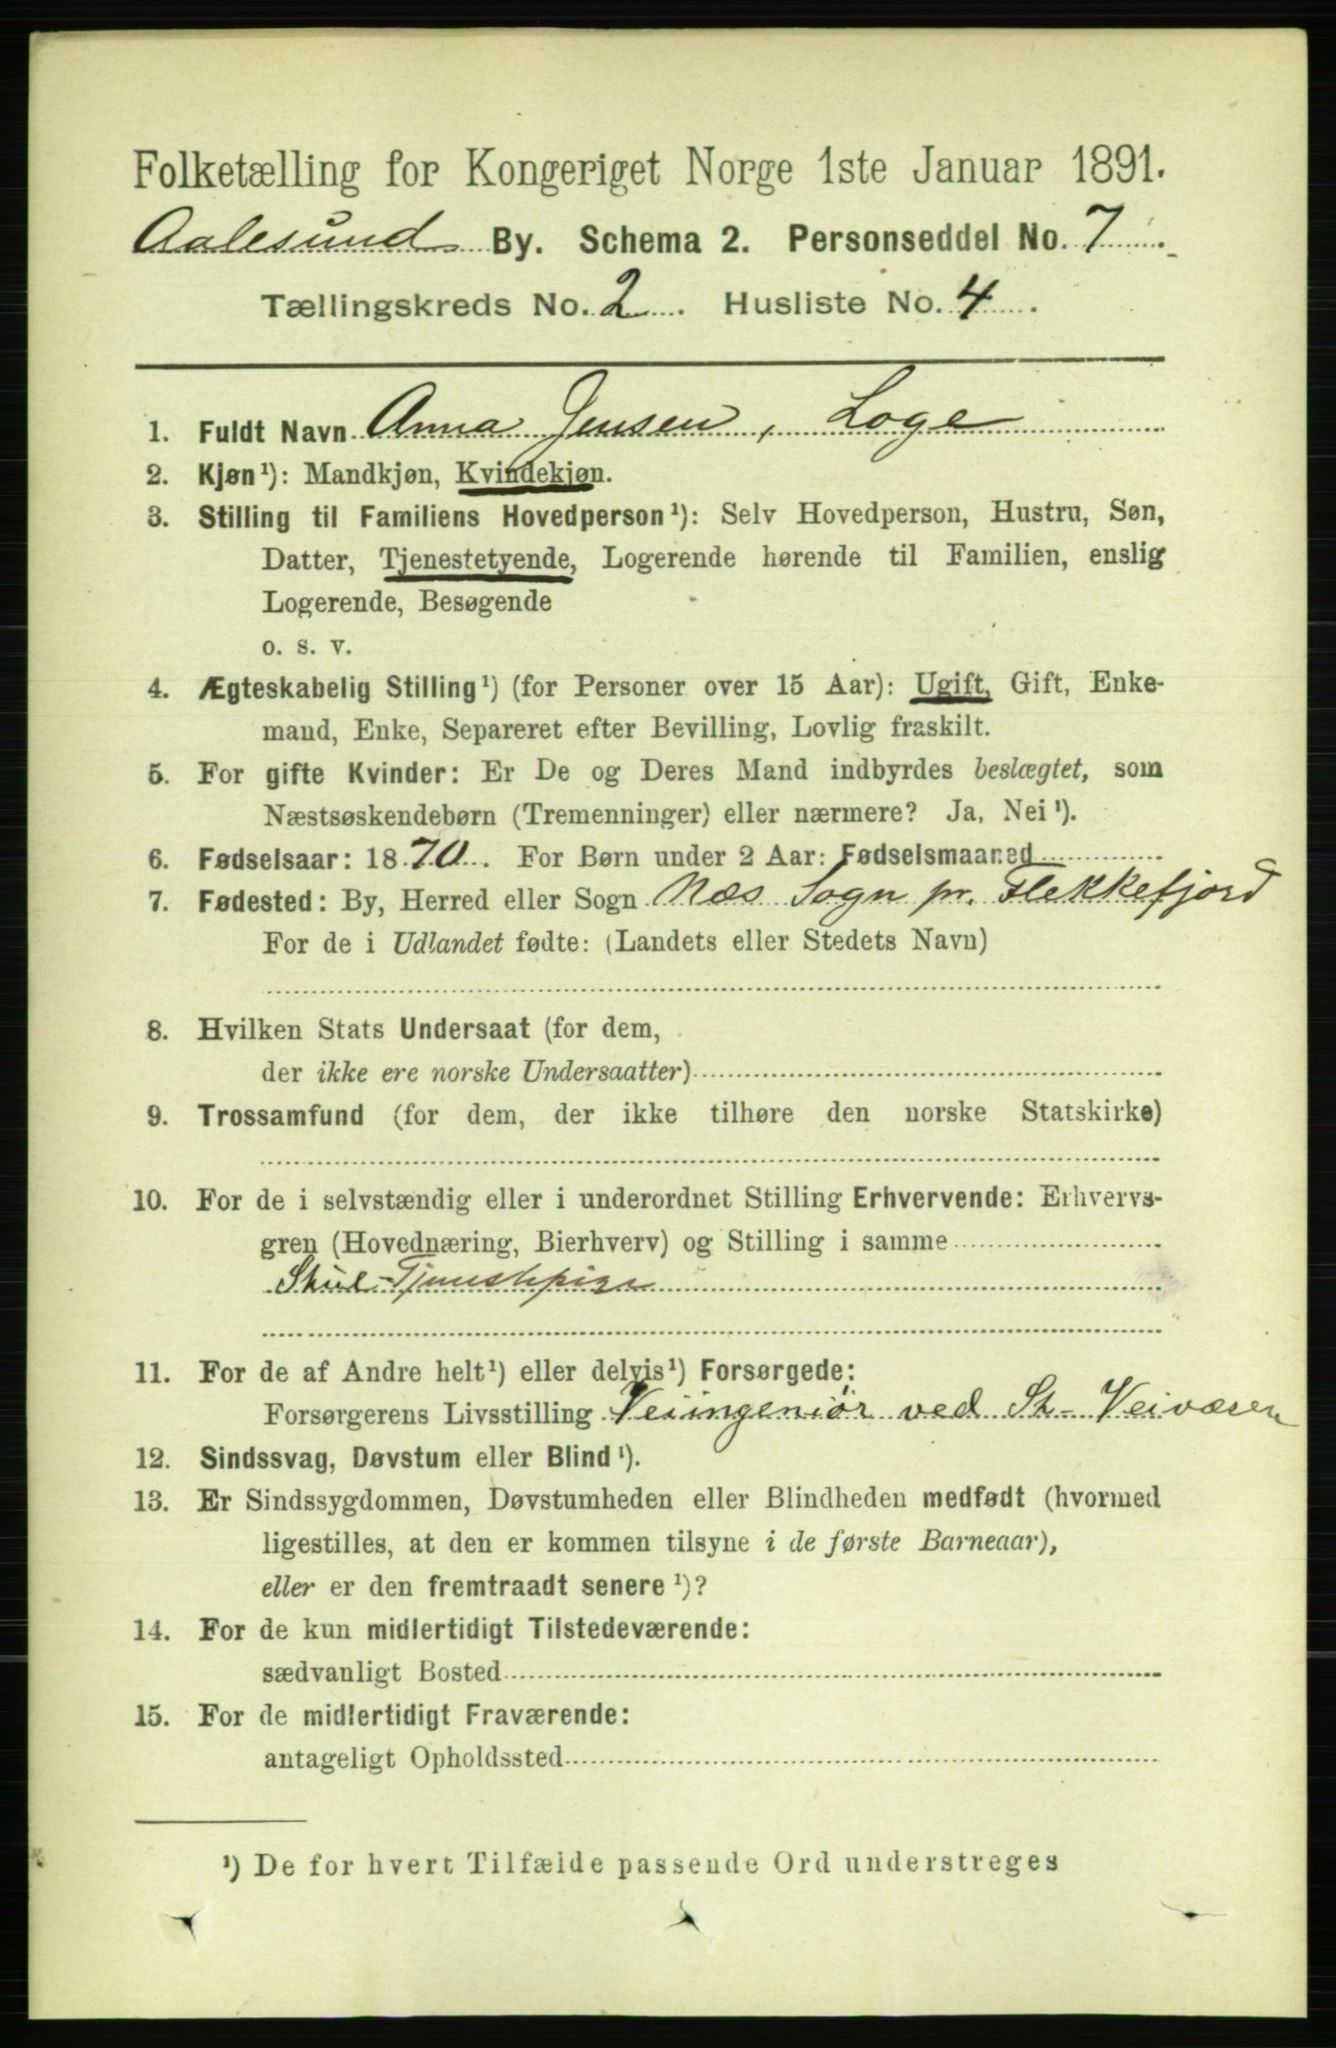 Folketælling for Kongeriget Norge 1ste Januar 1891.
Aalesund By. Schema 2. Personseddel No. 7
Tællingskreds No. 2. Husliste No. 4.
1. Fuldt Navn Anna Jensen, Loge
2. Kjøn¹): Mandkjøn, Kvindekjøn.
3. Stilling til Familiens Hovedperson¹): Selv Hovedperson, Hustru, Søn,
Datter, Tjenestetyende, Logerende hørende til Familien, enslig
Logerende, Besøgende
o. s. v.
4. Ægteskabelig Stilling¹) (for Personer over 15 Aar): Ugift, Gift, Enke-
mand, Enke, Separeret efter Bevilling, Lovlig fraskilt.
5. For gifte Kvinder: Er De og Deres Mand indbyrdes beslægtet, som
Næstsøskendebørn (Tremenninger) eller nærmere? Ja, Nei¹).
6. Fødselsaar: 1870. For Børn under 2 Aar: Fødselsmaaned
7. Fødested: By, Herred eller Sogn Næs Sogn pr. Flekkefjord
For de i Udlandet fødte: (Landets eller Stedets Navn)
8. Hvilken Stats Undersaat (for dem,
der ikke ere norske Undersaatter)
9. Trossamfund (for dem, der ikke tilhøre den norske Statskirke)
10. For de i selvstændig eller i underordnet Stilling Erhvervende: Erhvervs-
gren (Hovednæring, Bierhverv) og Stilling i samme
Tjenestepige
11. For de af Andre helt¹) eller delvis¹) Forsørgede:
Forsørgerens Livsstilling Veiingeniör ved St. Veivæsen
12. Sindssvag, Døvstum eller Blind¹).
13. Er Sindssygdommen, Døvstumheden eller Blindheden medfødt (hvormed
ligestilles, at den er kommen tilsyne i de første Barneaar),
eller er den fremtraadt senere¹)?
14. For de kun midlertidigt Tilstedeværende:
sædvanligt Bosted
15. For de midlertidigt Fraværende:
antageligt Opholdssted
¹) De for hvert Tilfælde passende Ord understreges